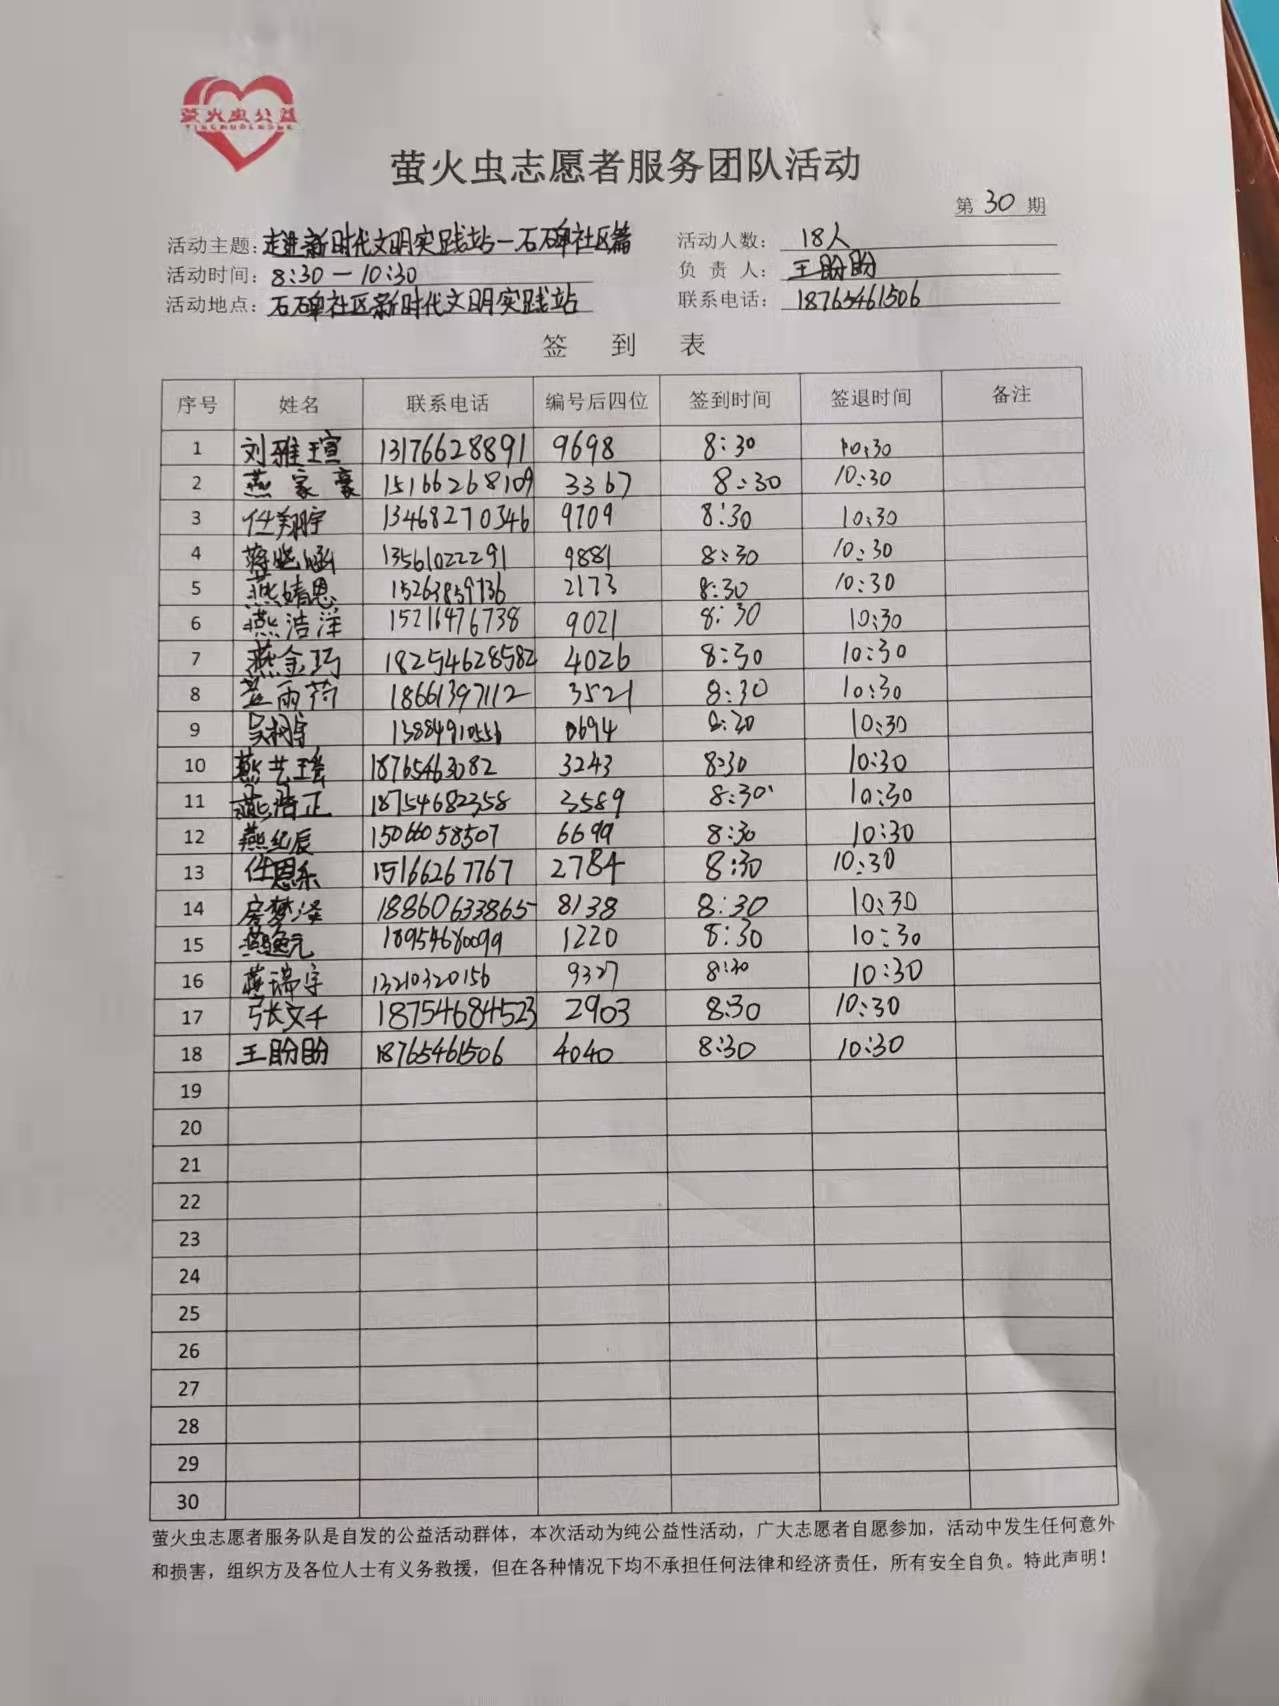 萤火虫公益
萤火虫志愿者服务团队活动
第 30 期
活动主题：走进新时代文明实践站—石碑社区篇 活动人数：18人
活动时间：8:30—10:30 负责人：王盼盼
活动地点：石碑社区新时代文明实践站 联系电话：18765461506
签到表
序号 姓名 联系电话 编号后四位 签到时间 签退时间 备注
1 刘雅瑄 13176628891 9698 8:30 10:30
2 燕家豪 15166268109 3367 8:30 10:30
3 任翔宇 13468270346 9709 8:30 10:30
4 蒋悦涵 13561022291 9881 8:30 10:30
5 燕婧恩 15263859736 2173 8:30 10:30
6 燕浩洋 15216476738 9021 8:30 10:30
7 燕金巧 18254628582 4026 8:30 10:30
8 雨荷 18661397112 3521 8:30 10:30
9 吴柯宇 0694 8:30 10:30
10 燕艺瑶 18765463082 3243 8:30 10:30
11 燕浩正 18754682358 3589 8:30 10:30
12 燕纪辰 15066058507 6699 8:30 10:30
13 任恩乐 15166267767 2784 8:30 10:30
14 房梦泽 18860633865 8138 8:30 10:30
15 燕逸元 18954680099 1220 8:30 10:30
16 燕瑞宇 13210320156 9327 8:30 10:30
17 张文千 18754684523 2903 8:30 10:30
18 王盼盼 18765461506 4040 8:30 10:30
19
20
21
22
23
24
25
26
27
28
29
30
萤火虫志愿者服务队是自发的公益活动群体，本次活动为纯公益性活动，广大志愿者自愿参加，活动中发生任何意外
和损害，组织方及各位人士有义务救援，但在各种情况下均不承担任何法律和经济责任，所有安全自负。特此声明！